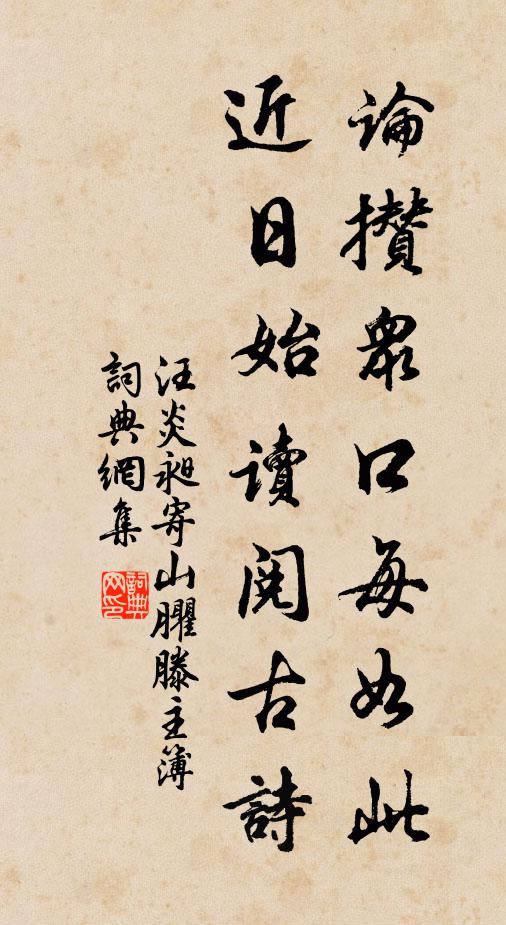 論攢眾口每如此
近日始讀閱古詩
汪炎昶寄山臞滕主簿
詞典網集
詞典網印